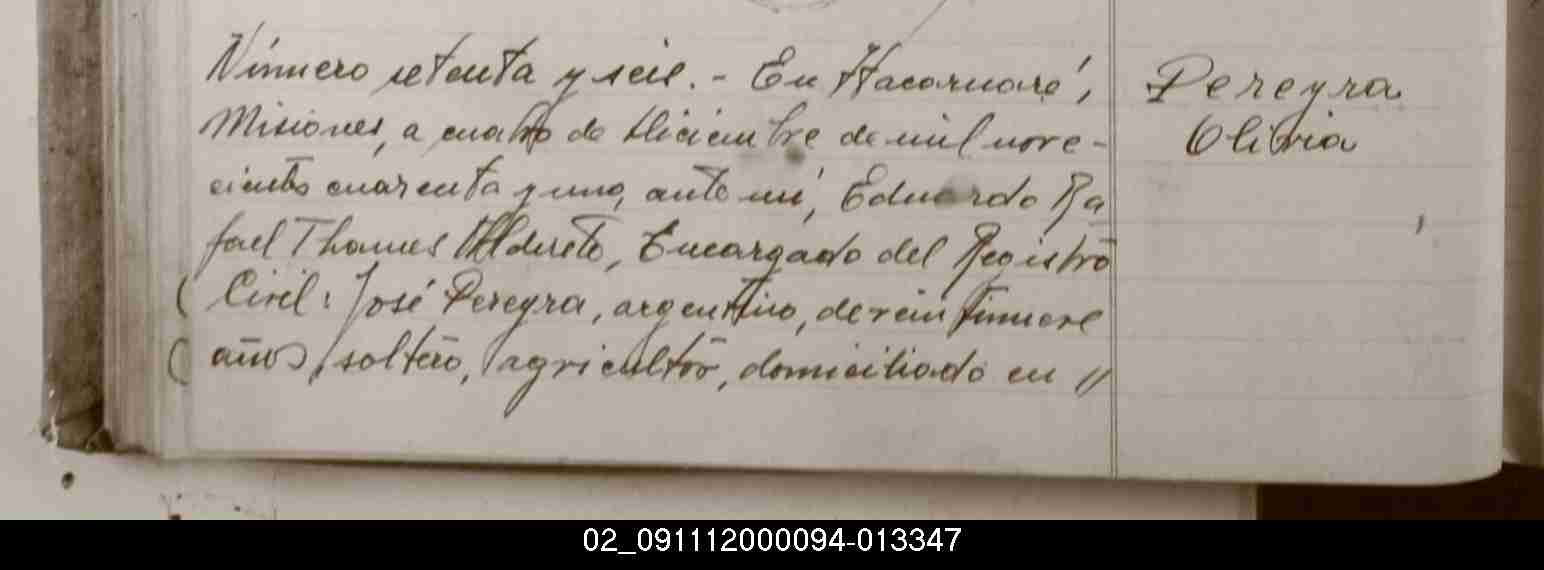 Número setenta y seis. - En Itacaruaré,
Misiones, a cuatro de Diciembre de mil nove-
cientos cuarenta y uno, ante mí, Eduardo Ra
fael Thames Alderete, Encargado del Registro
Civil: José Pereyra, argentino, de veintinueve
años, soltero, agricultor, domiciliado en //
Pereyra
Olibia
02_091112000094-013347